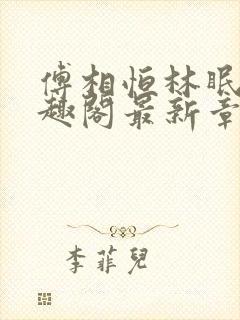 傅相恒林眠
趣阁最新章
李菲儿